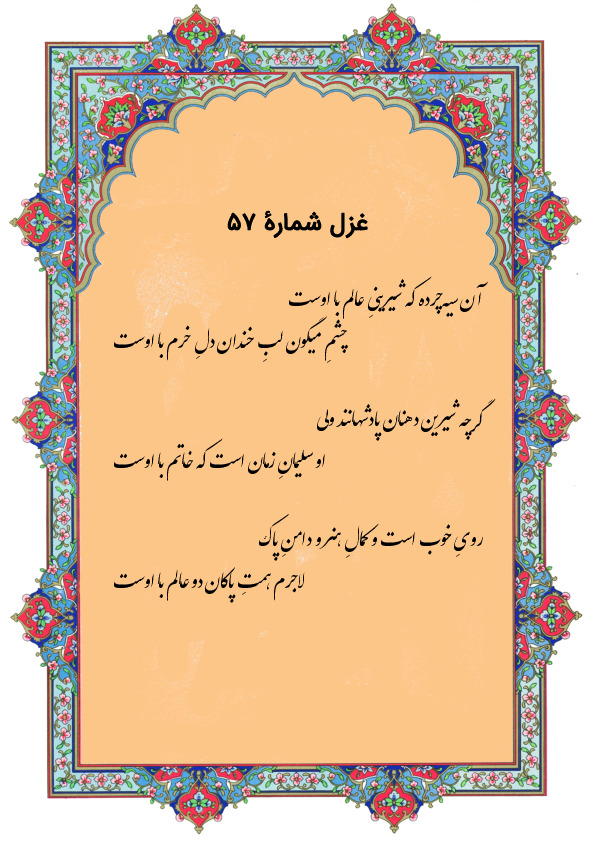 غزل شمارهٔ ۵۷
آن سیه‌چرده که شیرینیِ عالم با اوست
چشمِ میگون لبِ خندان دلِ خرم با اوست
گرچه شیرین دهنان پادشهانند ولی
او سلیمانِ زمان است که خاتم با اوست
رویِ خوب است و کمالِ هنر و دامنِ پاک
لاجرم همتِ پاکان دو عالم با اوست